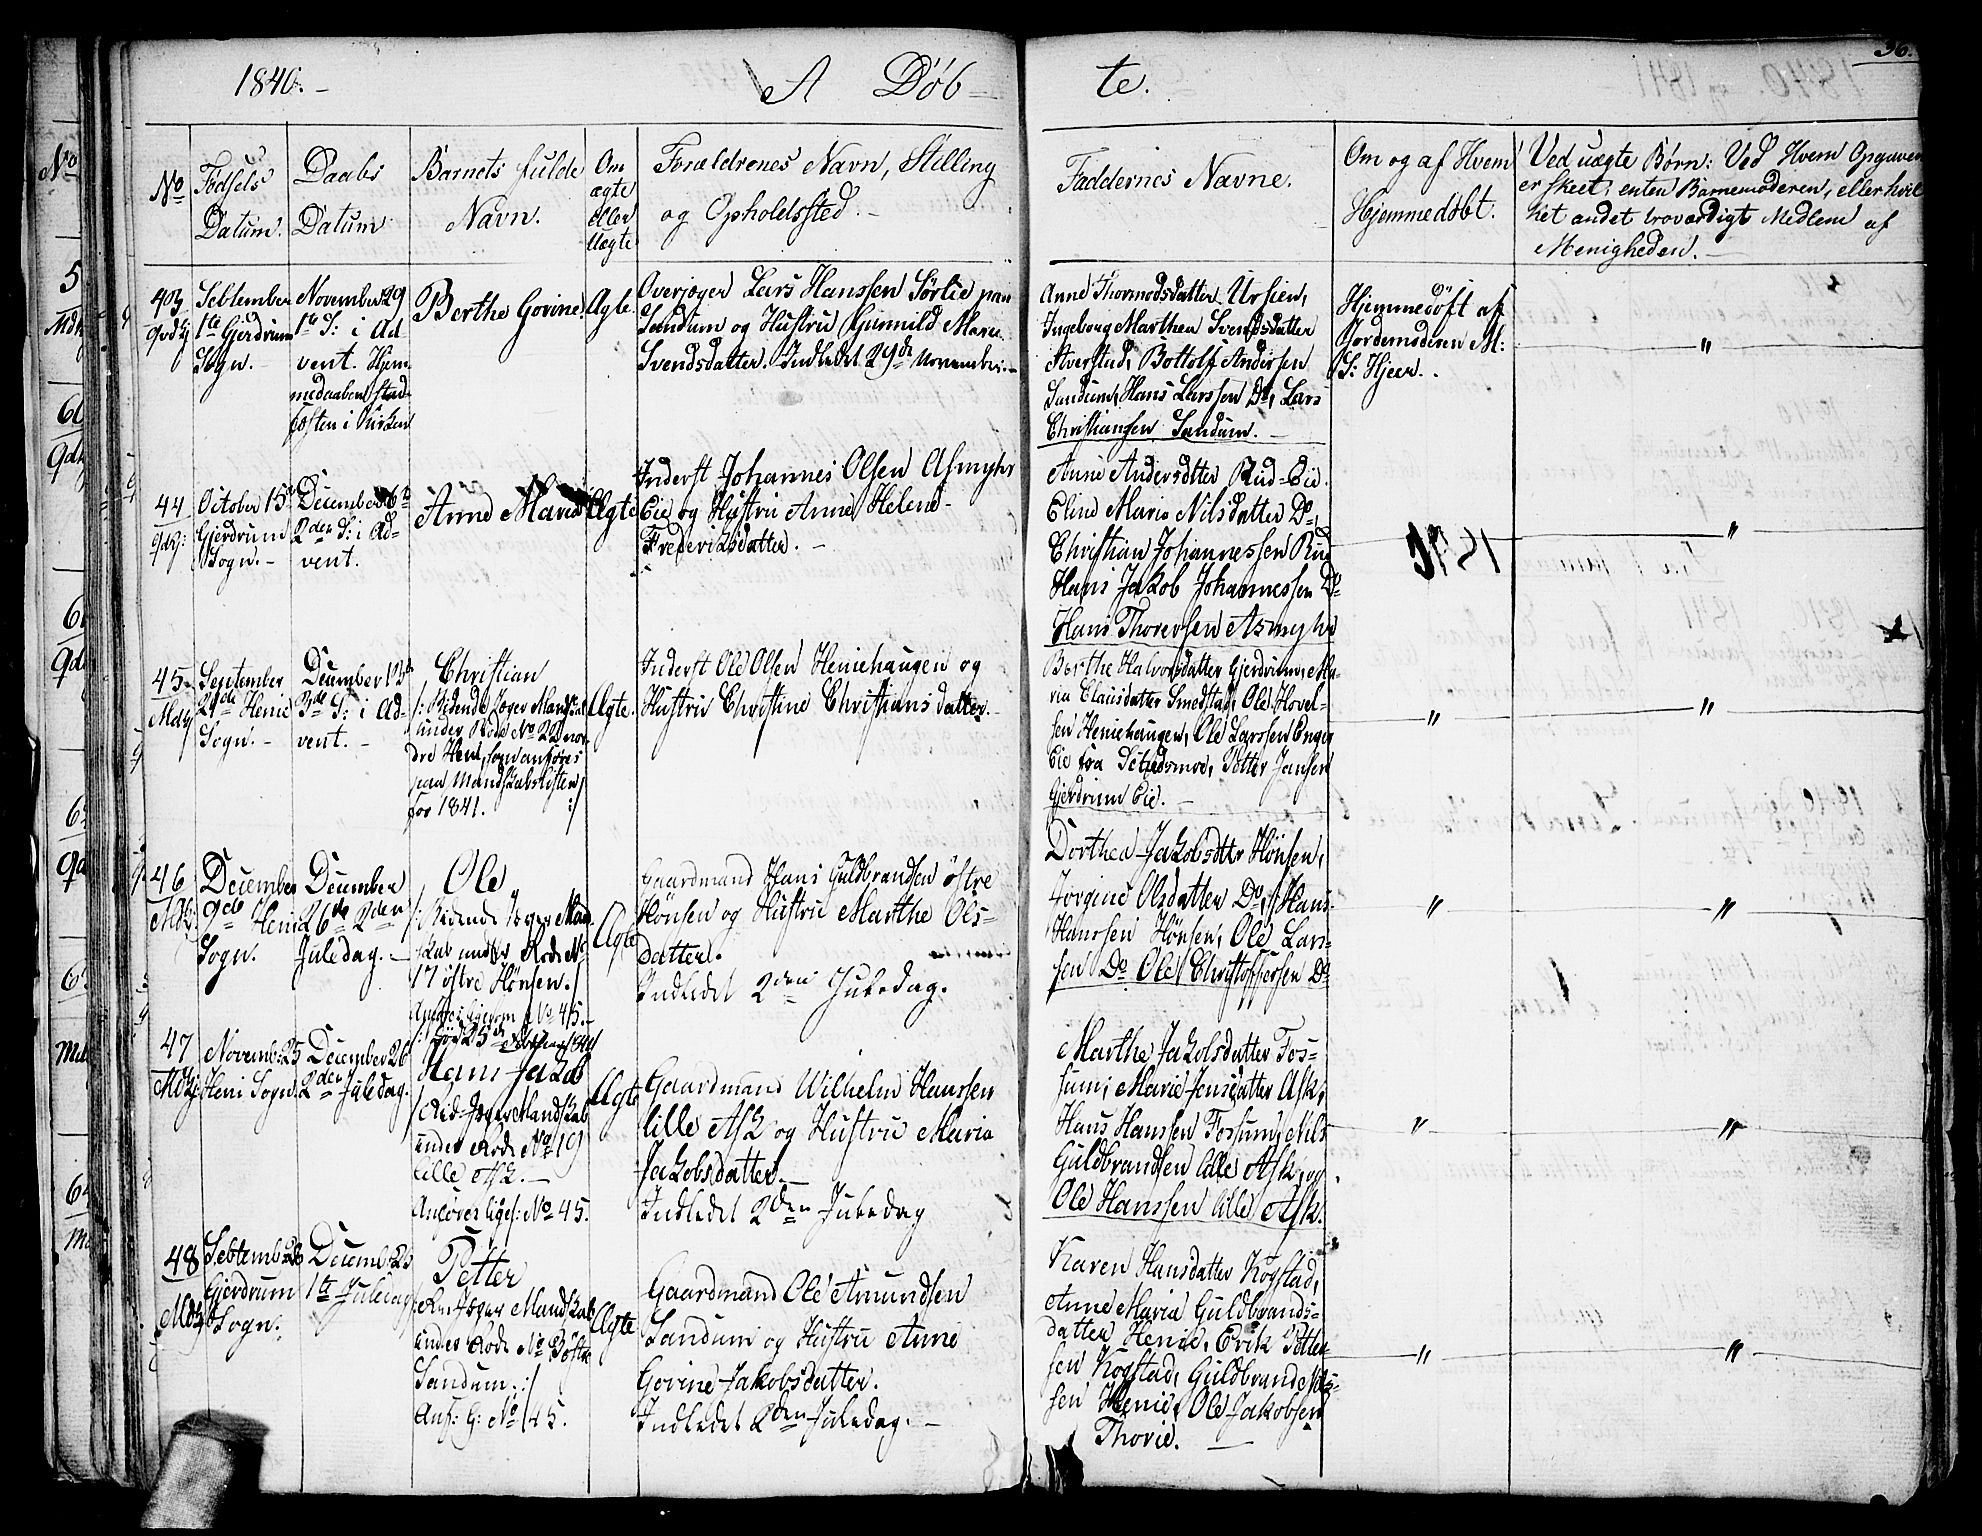 1840.
A Døb
te.
36.
No
Fødsels
Datum.
Daabs
Datum
Barnets fulde
Navn.
Om
ægte
eller
Uægte
Forældrenes Navn, Stilling
og Opholdssted.
Faddernes Navne.
Om og af Hvem
Hjemmedøbt.
Ved uægte Børn: Ved Hvem Opgaven
er skeet, enten Barnemoderen, eller hvil
ket andet troværdigt Medlem af
Menigheden.
43
Septembr
1te Gjerdrum
Sogn.
November 29
1te S: i Ad
vent. Hjem
medaaben stad
fæsten i Kirken
Berthe Govine.
Ægte.
Overjæger Lars Hanssen Sørlie paa
Sandum og Hustru Gunnild Marie
Svendsdatter. Indledet 29de November.
Anne Thormodsdatter Ursien,
Ingeborg Marthea Svendsdatter
Hverstad, Bottolf Andersen
Sandum, Hans Larssen Do, Lars
Christiansen Sandum.
Hjemmedøft af
Jordemoderen M:
S: Hjeer.
"
44
October 15de
Gjerdrum
Sogn.
December 6te
2den S: i Ad-
vent.
Anne Maria
Ægte
Inderst Johannes Olsen Asmyhr
Eie og Hustru Anne Helene
Frederiksdatter.
Anne Andersdatter Rud-Eie.
Eline Maria Nilsdatter Do,
Christian Johannessen Rud
Hans Jakob Johannessen Do
Hans Thorersen Asmyhr
"
45
Mdkj
September
29de Henie
Sogn.
December 13de
3de S: i Ad-
vent.
Christian
/: Ridende Jæger Mandskab
under Rode No 22 nor
dre Heni, som anføres
paa Mandskabslisten
for 1841. :/
Ægte.
Inderst Ole Olsen Heniehaugen og
Hustru Christine Christiansdatter.
Berthe Halvorsdatter Gjerdrum, Ma-
ria Clausdatter Smedstad, Ole Hovel-
sen Heniehaugen, Ole Larssen Enger
Eie fra Setnesmoe, Petter Jansen
Gjerdrum Eie.
" "
46
Mdkj
December
9de Henie
Sogn.
December
26de 2den
Juledag.
Ole
/: Ridende Jæger Mand
skab under Rode No
17 østre Hønsen. /
No 45.
Ægte
Gaardmand Hans Guldbrandsen østre
Hønsen og Hustru Marthe Ols-
datter.
Indledet 2den Juledag.
Dorthea Jakobsdatter Hønsen,
Jorgine Olsdatter Do, Hans
Hanssen Hønsen, Ole Lars-
sen Do Ole Christoffersen Do
" "
47
Mdkj
Novemb: 25
Heni Sogn.
December 26
2den Juledag.
Hans Jakob
/: Rid-Jæger Mandskab
under Rode No 19
lille Ask.
No 45.
Ægte
Gaardmand Wilhelm Hanssen
lille Ask og Hustru Maria
Jakobsdatter.
Indledet 2den Juledag
Marthe Jakobsdatter Fos-
sum, Marie Jensdatter Ask,
Hans Hanssen Fossum, Nils
Guldbrandsen lille Ask, og
Ole Hanssen lille Ask.
" "
48
Mdkj
Septemb:
Gjerdrum
Sogn.
Decemb: 25
1te Juledag
Petter
Jæger Mandskab
under Rode No 3 østre
Sandum. :/
No 45.
Ægte
Gaardmand Ole Amundsen
Sandum og Hustru Anne
Govine Jakobsdatter.
Indledet 2den Juledag.
Karen Hansdatter Kogstad,
Anne Maria Guldbrands-
datter Henie, Erik Petter-
sen Kogstad, Guldbrand Nils-
sen Henie, Ole Jakobsen
Thorie.
" "